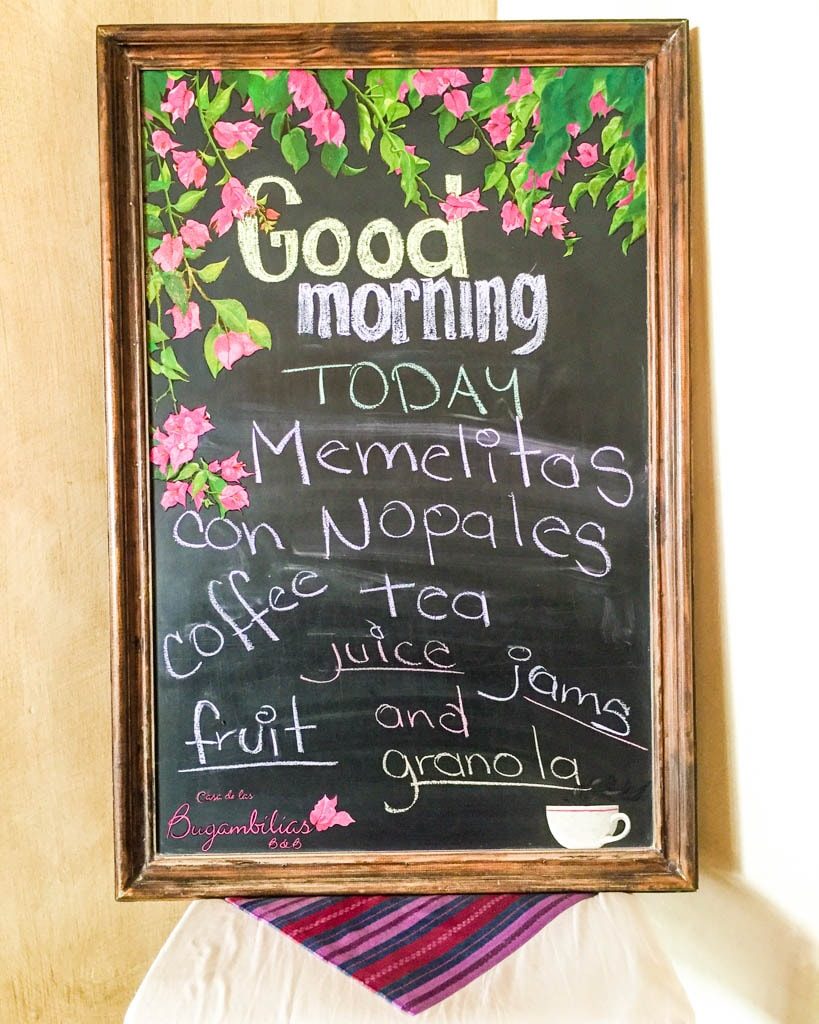 Good
morning
TODAY
Memelitas
con Nopales
coffee tea
juice jams
fruit and
granola
Casa de las
Bugambilias
B & B